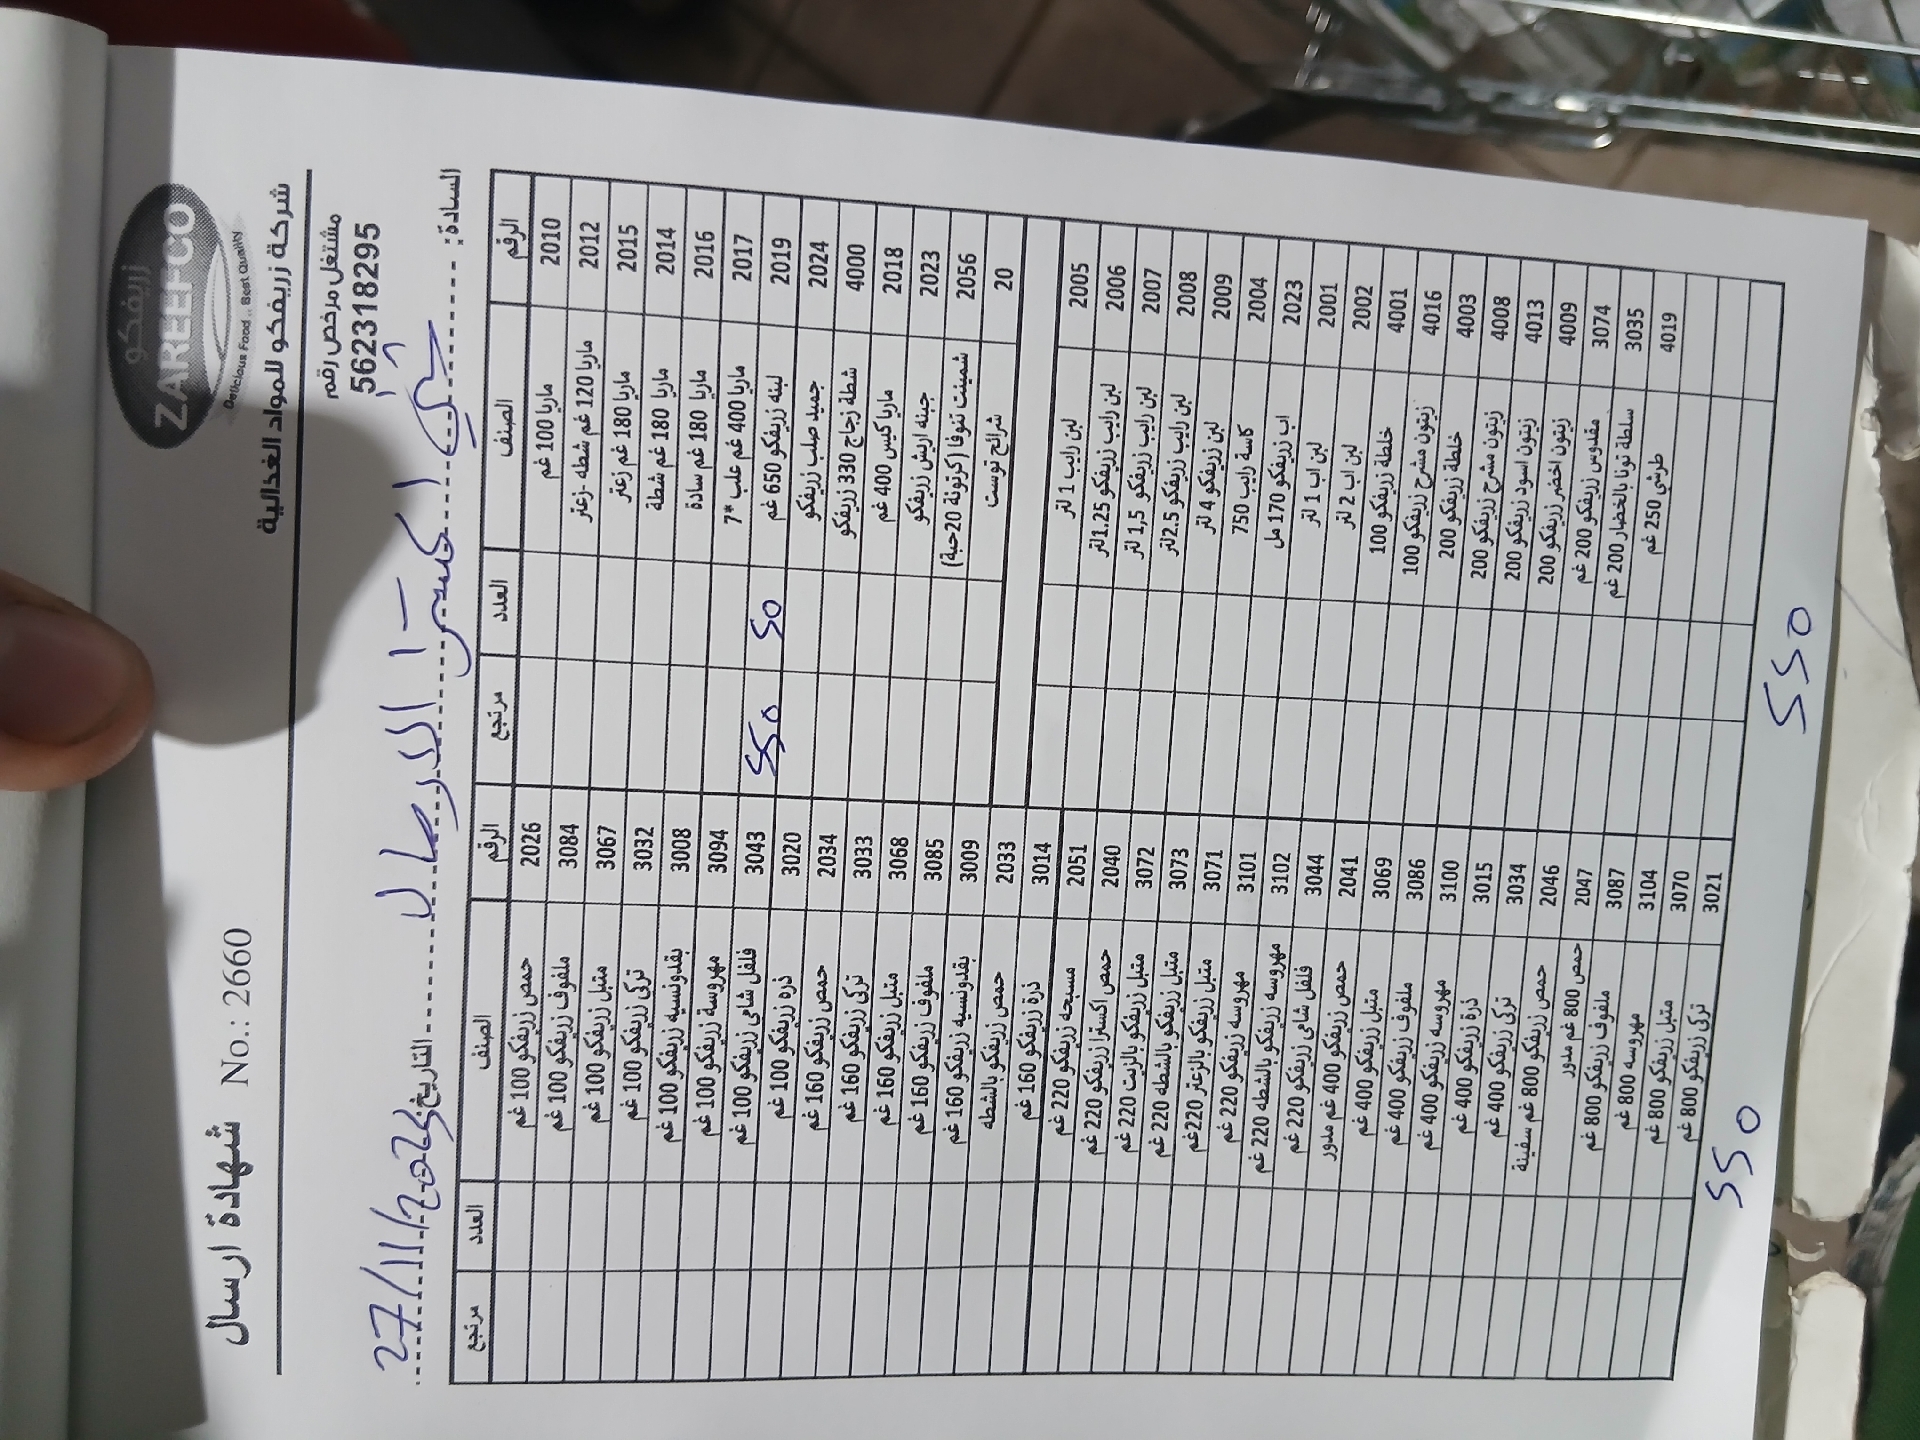 زريفكو
ZAREEFCO
Delicious Food .. Best Quality
شركة زريفكو للمواد الغذائية
شهادة ارسال No.: 2660
مشتغل مرخص رقم
562318295
السادة: التاريخ: 27/11/2025
الرقم الصنف العدد مرتجع الرقم الصنف العدد مرتجع
2010 ماريا 100 غم 2026 حمص زريفكو 100 غم
2012 ماريا 120 غم شطه -زعتر 3084 ملفوف زريفكو 100 غم
2015 ماريا 180 غم زعتر 3067 متبل زريفكو 100 غم
2014 ماريا 180 غم شطة 3032 تركي زريفكو 100 غم
2016 ماريا 180 غم سادة 3008 بقدونسيه زريفكو 100 غم
2017 ماريا 400 غم علب *7 3094 مهروسة زريفكو 100 غم
2019 لبنه زريفكو 650 غم 50 550 3043 فلفل شامي زريفكو 100 غم
2024 جميد صلب زريفكو 3020 ذرة زريفكو 100 غم
4000 شطة زجاج 330 زريفكو 2034 حمص زريفكو 160 غم
2018 ماريا كيس 400 غم 3033 تركي زريفكو 160 غم
2023 جبنه اريش زريفكو 3068 متبل زريفكو 160 غم
2056 شمينت تنوفا (كرتونة 20حبة) 3085 ملفوف زريفكو 160 غم
20 شرائح توست 3009 بقدونسيه زريفكو 160 غم
2033 حمص زريفكو بالشطه
3014 ذرة زريفكو 160 غم
2005 لبن رايب 1 لتر 2051 مسبحه زريفكو 220 غم
2006 لبن رايب زريفكو 1.25لتر 2040 حمص اكسترا زريفكو 220 غم
2007 لبن رايب زريفكو 1,5 لتر 3072 متبل زريفكو بالزيت 220 غم
2008 لبن رايب زريفكو 2.5لتر 3073 متبل زريفكو بالشطه 220 غم
2009 لبن زريفكو 4 لتر 3071 متبل زريفكو بالزعتر 220غم
2004 كاسة رايب 750 3101 مهروسه زريفكو 220 غم
2023 اب زريفكو 170 مل 3102 مهروسه زريفكو بالشطه 220 غم
2001 لبن اب 1 لتر 3044 فلفل شامي زريفكو 220 غم
2002 لبن اب 2 لتر 2041 حمص زريفكو 400 غم مدور
4001 خلطة زريفكو 100 3069 متبل زريفكو 400 غم
4016 زيتون مشرح زريفكو 100 3086 ملفوف زريفكو 400 غم
4003 خلطة زريفكو 200 3100 مهروسه زريفكو 400 غم
4008 زيتون مشرح زريفكو 200 3015 ذرة زريفكو 400 غم
4013 زيتون اسود زريفكو 200 3034 تركي زريفكو 400 غم
4009 زيتون اخضر زريفكو 200 2046 حمص زريفكو 800 غم سفينة
3074 مقدوس زريفكو 200 غم 2047 حمص 800 غم مدور
3035 سلطة تونا بالخضار 200 غم 3087 ملفوف زريفكو 800 غم
4019 طرشي 250 غم 3104 مهروسه 800 غم
3070 متبل زريفكو 800 غم
3021 تركي زريفكو 800 غم
550 550